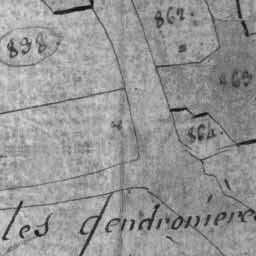 867.
898.
863
864.
les gendronieres